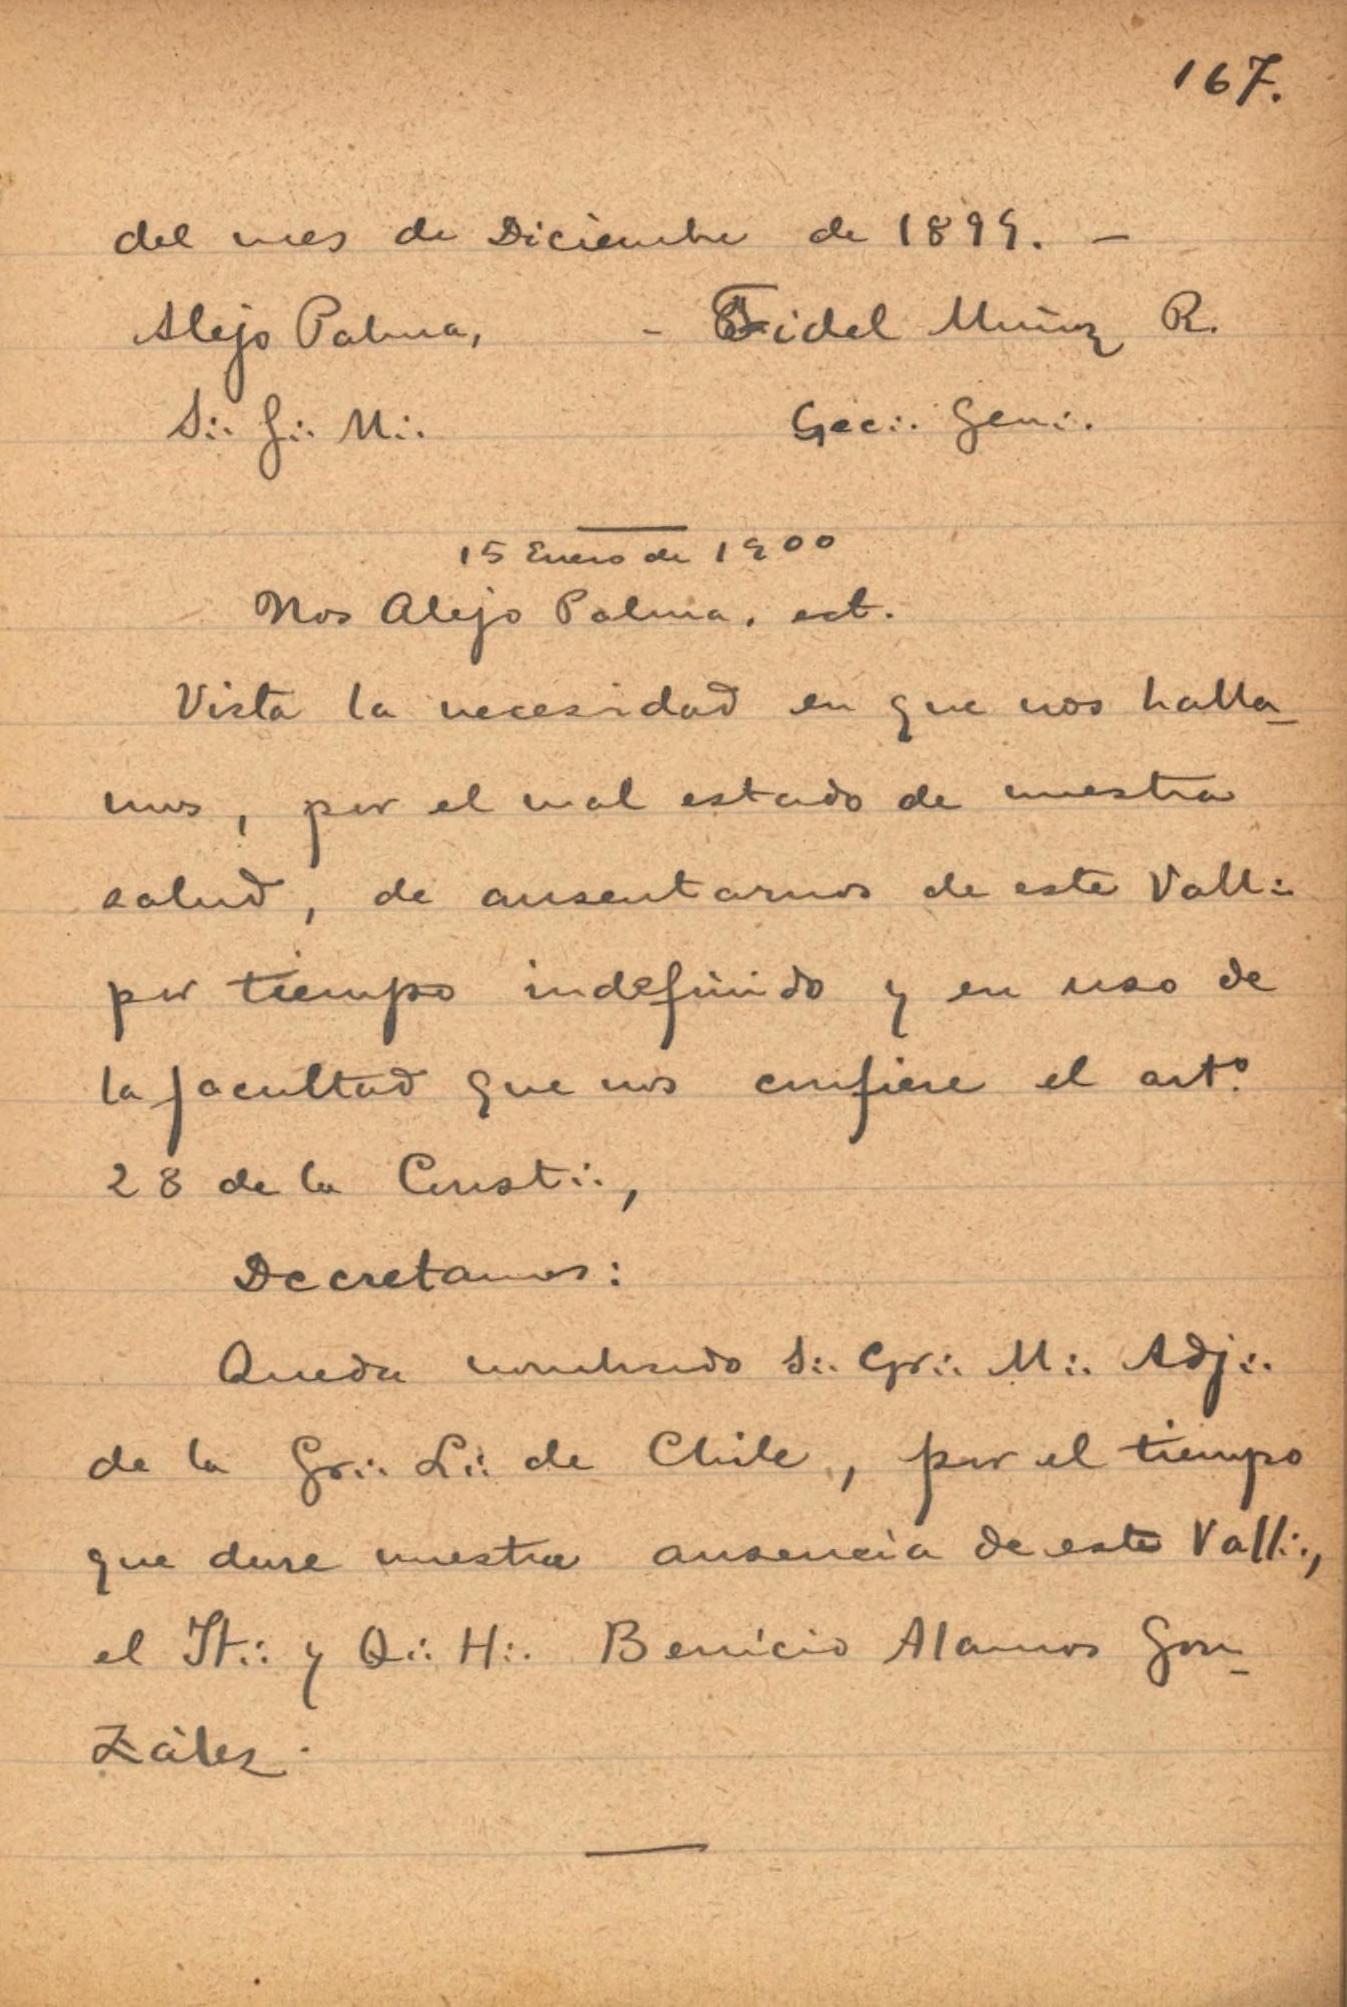 167.
del mes de Diciembre de 1899. —
Alejo Palma, - Fidel Muñoz R.
S∴ G∴ M∴ Sec∴ Gen∴
15 Enero de 1900
Nos Alejo Palma, ect.
Vista la necesidad en que nos halla-
mos, por el mal estado de nuestra
salud, de ausentarnos de este Vall∴
por tiempo indefinido y en uso de
la facultad que nos confiere el artº
28 de la Const∴,
Decretamos:
Queda nombrado S∴ Gr∴ M∴ Adj∴
de la Gr∴ L∴ de Chile, por el tiempo
que dure nuestra ausencia de este Vall∴,
el It∴ y Q∴ H∴ Benicio Alamos Gon-
zález.